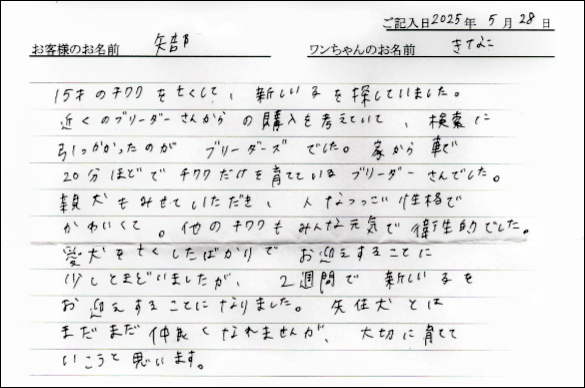 ご記入日2025年 5月 28日
お客様のお名前 矢部 ワンちゃんのお名前 きなこ
15才のチワワを亡くして、新しい子を探していました。
近くのブリーダーさんからの購入を考えていて、検索に
引っかかったのが ブリーダーズ でした。家から車で
20分ほどで チワワだけを育てている ブリーダーさんでした。
親犬もみせていただき、人なつっこい性格で
かわいくて。他のチワワもみんな元気で衛生的でした。
愛犬を亡くしたばかりで お迎えすることに
少しとまどいましたが、2週間で 新しい子を
お迎えすることになりました。先住犬とは
まだまだ仲良くなれませんが、大切に育てて
いこうと思います。